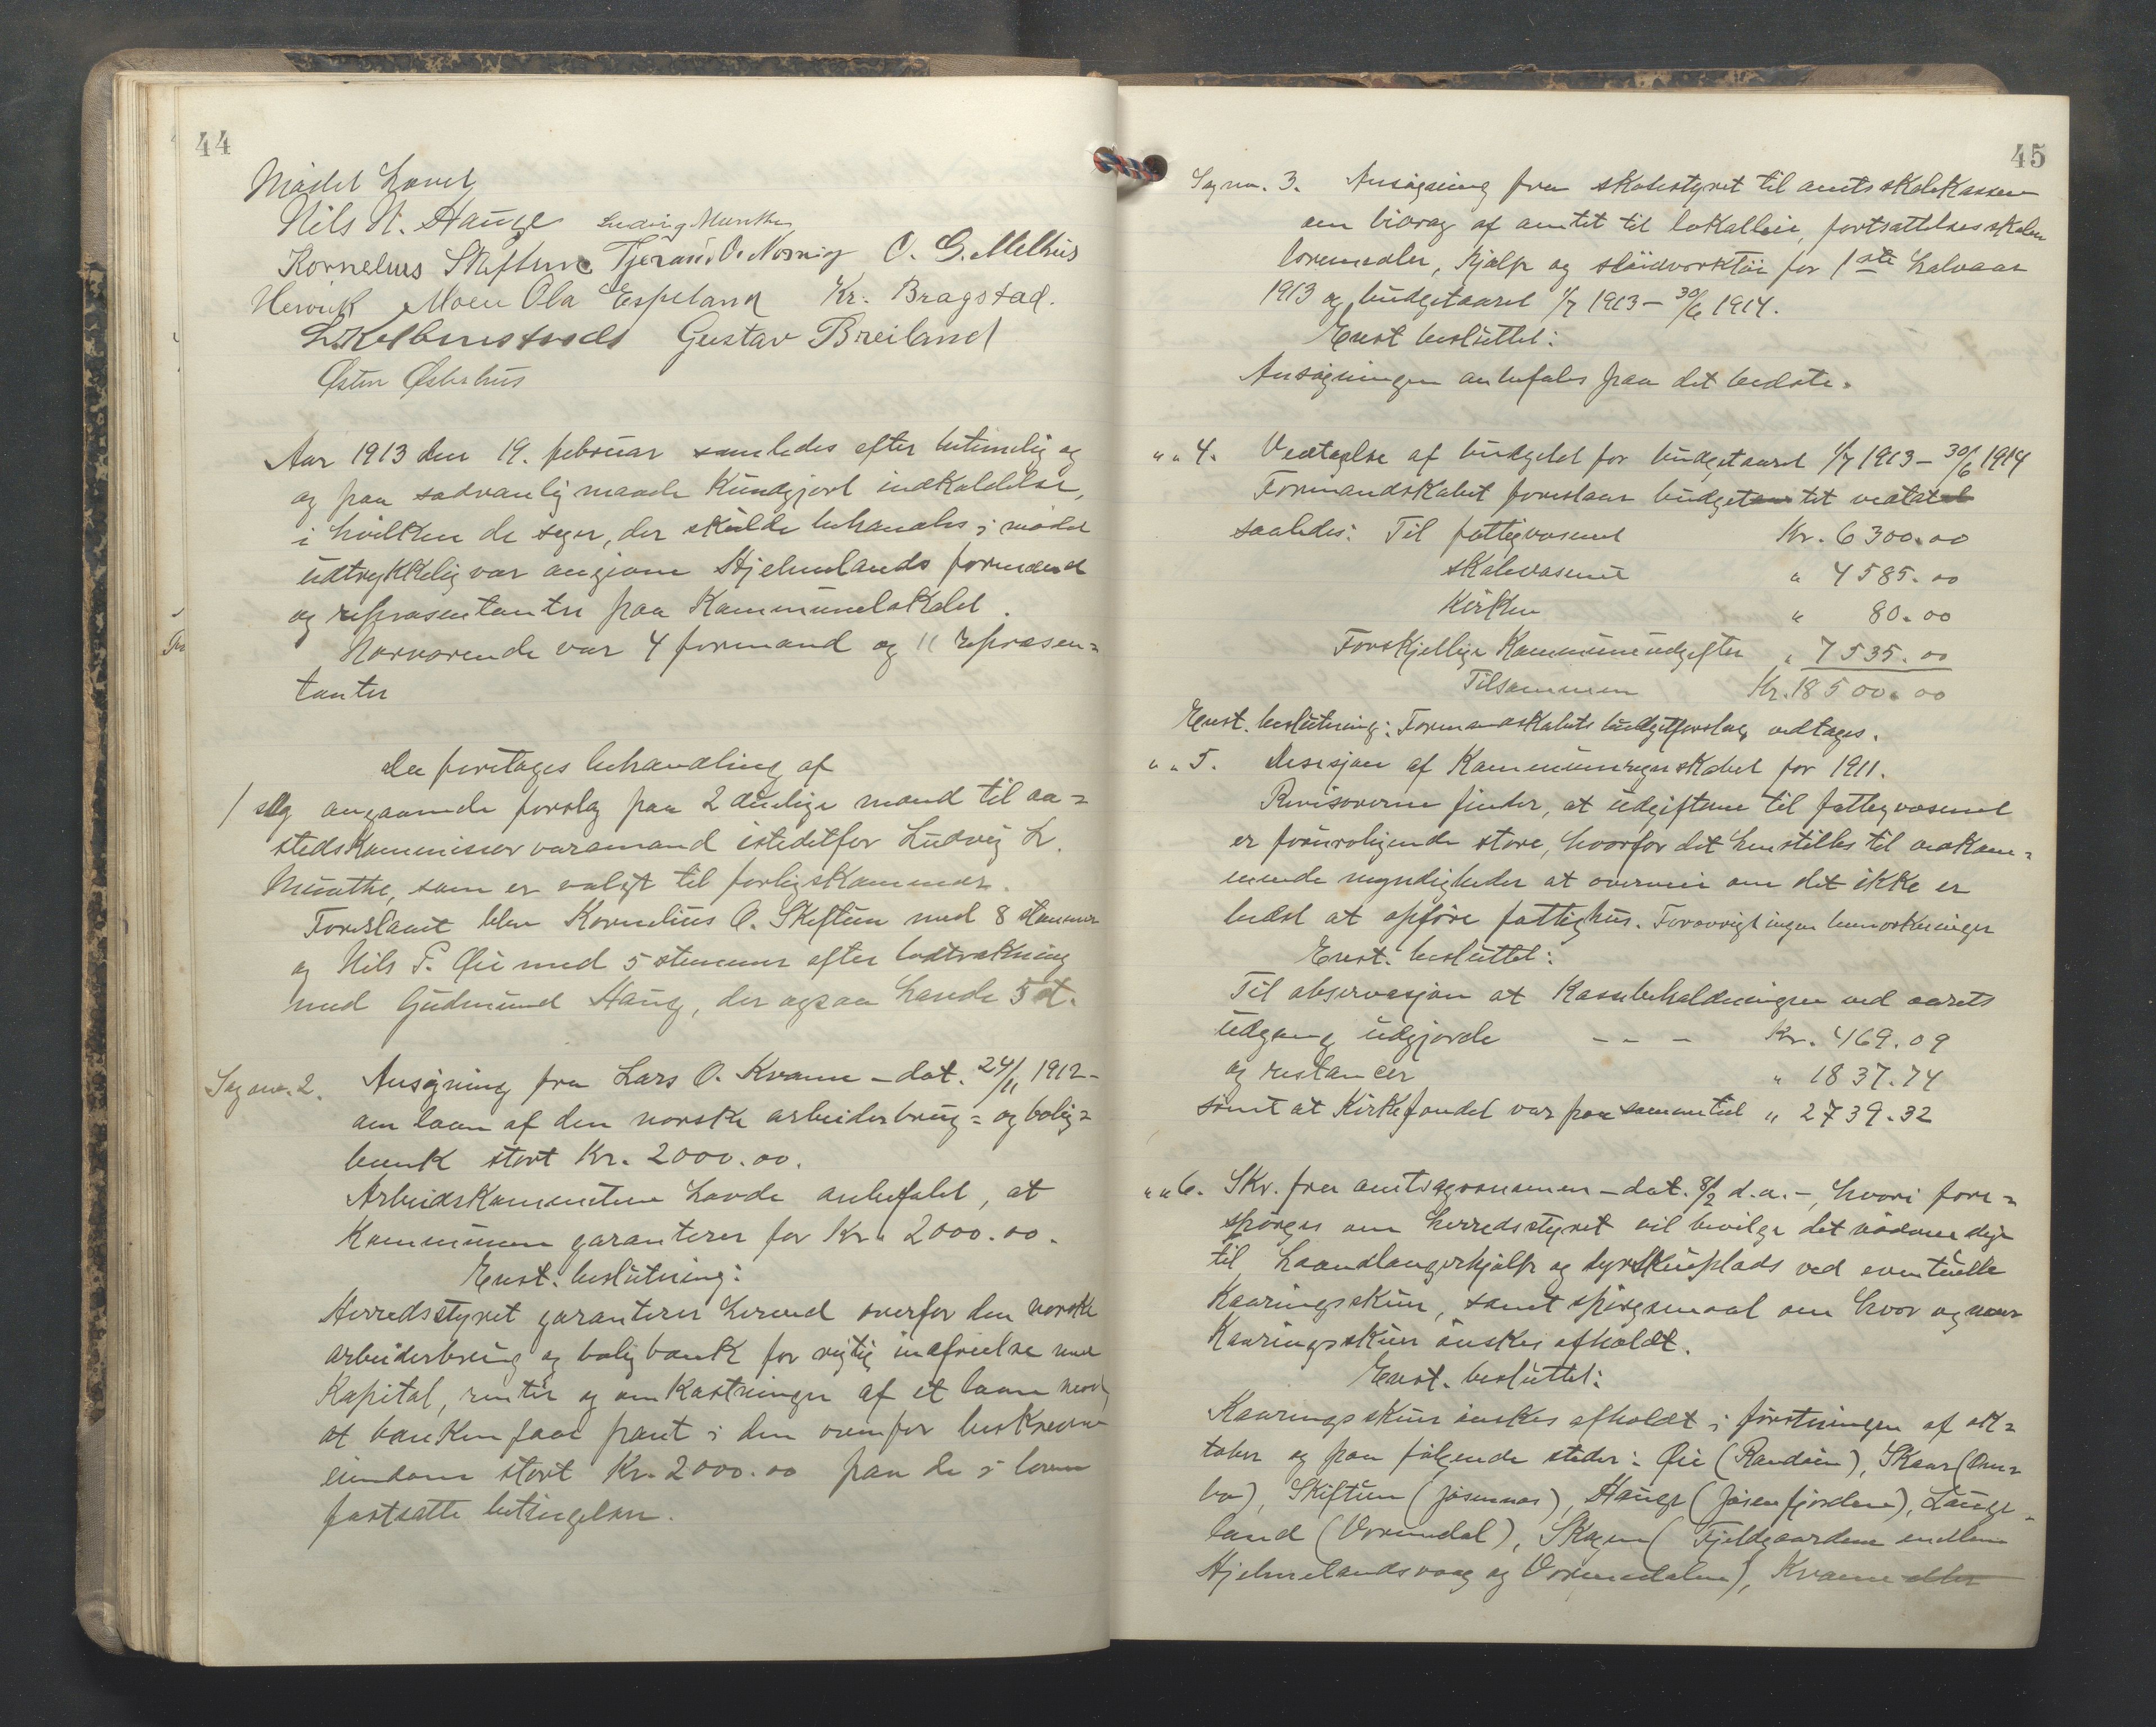 44
Mødet hævet
Nils N. Hauge Ludvig Munthe
Kornelius Skiftun Tjeran O. O. G. Melhus
Henrik Moen Ola Espeland Kr. Bragstad.
Gustav Breiland
Østen Østerhus
Aar 1913 den 19. februar samledes efter betimelig og
og paa sædvanlig maade kundgjort indkaldelse,
i hvilken de sager, der skulde behandles i mødet
udtrykkelig var angivne Hjelmelands formænd
og repræsentanter paa Kommunelokalet.
Nærværende var 4 formænd og 11 repræsen=
tanter
Der foretages behandling af
1 sag angaaende forslag paa 2 duelige mænd til aa=
stedskommissær varamand istedetfor Ludvig L.
Munthe, som er valgt til forligskommisær.
Foreslaaet blev Kornelius O. Skiftun med 8 stemmer
og Nils P. Øie med 5 stemmer efter lodtrækning
med Gudmund Haug, der ogsaa havde 5 st.
Sag no. 2. Ansøgning fra Lars O. Kvame – dat. 24/11 1912 –
om laan af den norske arbeiderbrug= og bolig=
bank stort Kr. 2000.00.
Arbeidskomiteen havde anbefalet, at
Kommunen garanterer for Kr. 2000.00.
Enst. beslutning:
Herredsstyret garanterer herved overfor den norske
arbeiderbrug og boligbank for rigtig indfrielse med
Kapital, renter og omkostninger af et laan mod,
at banken faar pant i den ovenfor beskrevne
eiendom stort Kr. 2000.00 paa de i loven
fastsatte betingelser.
45
Sag no. 3. Ansøgning fra skolestyret til amtsskolekassen
om bidrag af amtet til lokalleie, fortsættelsesskolen
læremidler, hjælp og sløidverktøi for 1ste halvaar
1913 og budgetaaret 1/7 1913 – 30/6 1914.
Enst besluttet:
Ansøgningen anbefales paa det bedste.
" " 4. Vedtagelse af budgetet for budgetaaret 1/7 1913 – 30/6 1914
Formandskabet foreslaar budgettet vedtat
saaledes: Til fattigvæsenet Kr. 6300.00
skolevæsenet " 4585.00
Kirken " 80.00
Forskjellige Kommuneudgifter " 7535.00
Tilsammen Kr. 18500.00
Enst. beslutning: Formandskabets budgetforslag vedtages.
" " 5. Desisjon af Kommuneregnskabet for 1911.
Revisorerne finder, at udgifterne til fattigvæsenet
er foruroligende store, hvorfor det henstilles til vedkom=
mende myndigheder at overveie om det ikke er
bedst at opføre fattighus. Forøvrigt ingen bemerkninger
Enst. besluttet:
Til observasjon at Kassebeholdningen ved aarets
udgang udgjorde – – – Kr. 469.09
og restancer " 1837.74
samt at Kirkefondet var paa samme tid " 2739.32
" " 6. Skr. fra amtsagronomen – dat. 8/2 d.a. –, hvori fore=
spørges om herredsstyret vil bevilge det nødvendige
til haandlangerhjælp og dyrskueplads ved eventuelle
Kaaringsskuer, samt spørgsmaal om hvor og naar
Kaaringsskuer ønskes afholdt.
Enst. besluttet:
Kaaringsskuer ønskes afholdt i førstningen af ok=
tober og paa følgende steder: Øie (Randøen), Skaar (Om=
bo), Skiftun (Jøsennes), Hauge (Jøsenfjorden), Lauge=
land (Vormedal), Skagen (Fjeldgaardene mellem
Hjelmelandsvaag og Vormedalen), Kvame eller